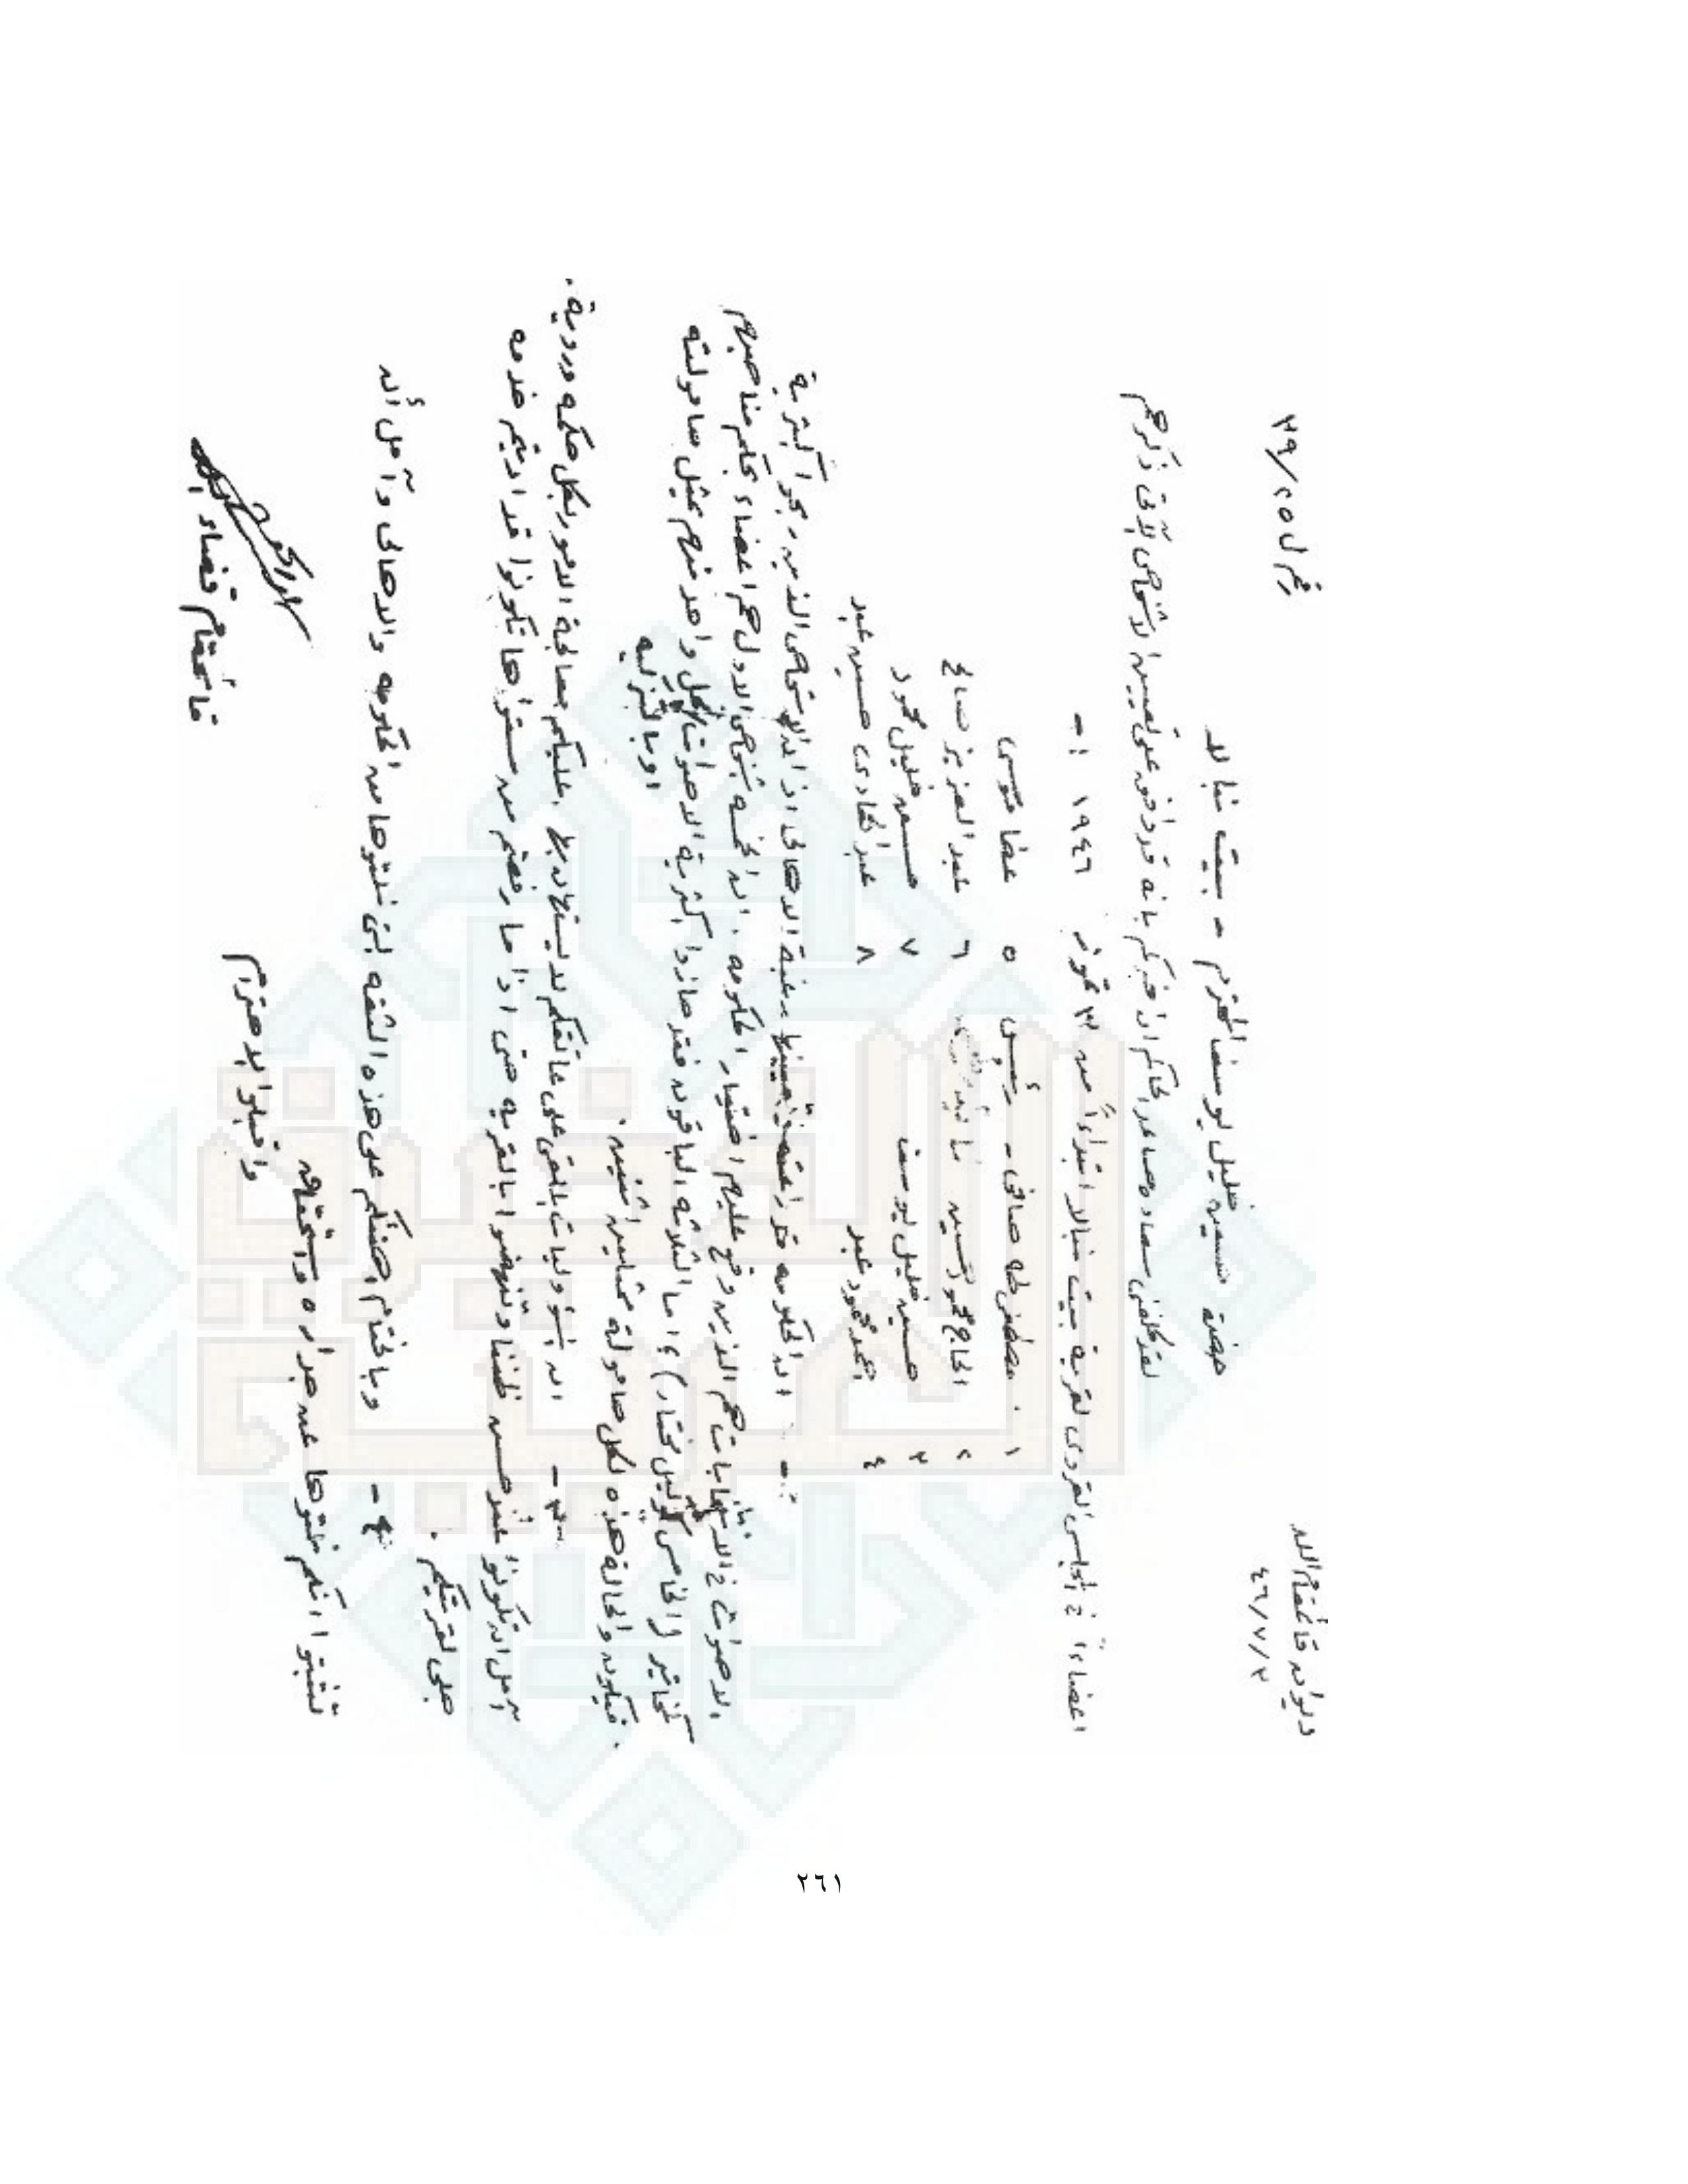 ديوان قائمقام اللد
رقم ل ٣٩/٢٥
٤٦/٧/٢
حضرة حسين خليل يوسف المحترم - بيت نبالا
لقد كلفني سعادة مساعد الحاكم ان اخبركم بانه قد وافق على تعيين الاشخاص الآتي ذكرهم
اعضاءاً في المجلس القروي لقرية بيت نبالا ابتداءاً من ٣ تموز ١٩٤٦ :-
١ مصطفى طه صافي - رئيس ٥ عطا موسى
٢ الحاج محمود حسين ٦ عبد العزيز صالح
٣ حسين خليل يوسف ٧ حسن خليل محمود
٤ محمد محمود عبد ٨ عبد الهادي حسين عبد
٢- ان الحكومه قد رغبة الاهالي اذ ان الاشخاص الذين ربحوا اكثرية
الاصوات في الانتخابات هم الذين وقع عليهم اختيار الحكومه . ان الخمسة اشخاص الاول هم اعضاء بحكم مناصبهم
كمخاتير (الخامس كوكيل مختار) ، اما الثلاثه الباقون فقد حازوا اكثرية الاصوات وكل واحد منهم يمثل حامولته
او بالتزكيه
فيكون والحالة هذه لكل حامولة ممثلين اثنين .
٣- ان المسؤوليات الملقى على عاتقكم لا يستهان بها ، عليكم معالجة الامور بكل حكمه وروية .
آمل ان تكونوا عند حسن ظننا وتنهضوا بالقريه حتى اذا ما رفعتم من مستواها تكونوا قد اديتم خدمه
جلى لقريتكم .
٤- وبالختام اهنئكم على هذه الثقه التي نلتموها من الحكومه والاهالي وآمل أن
تثبتوا انكم نلتموها عن جداره واستحقاق
واقبلوا الاحترام
قائمقام قضاء اللد
٢٦١